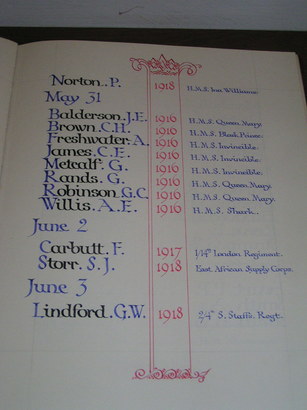 Norton. P. 1918 H.M.S. Inn
May 31
Balderson. J.E. 1916 H.M.S. Queen Mary.
Brown. C.H. 1916 H.M.S. Black Prince.
Freshwater. A. 1916 H.M.S. Invincible.
James. C.E. 1916 H.M.S. Invincible.
Metcalf. G. 1916 H.M.S. Invincible.
Rands. G. 1916 H.M.S. Queen Mary.
Robinson. G.C. 1916 H.M.S. Queen Mary.
Willis. A.E. 1916 H.M.S. Shark.
June 2
Carbutt. F. 1917 London Regiment.
Storr. S.J. 1918 East African Supply Corps.
June 3
Lindford. G.W. 1918 2/4th S. Staffs. Regt.